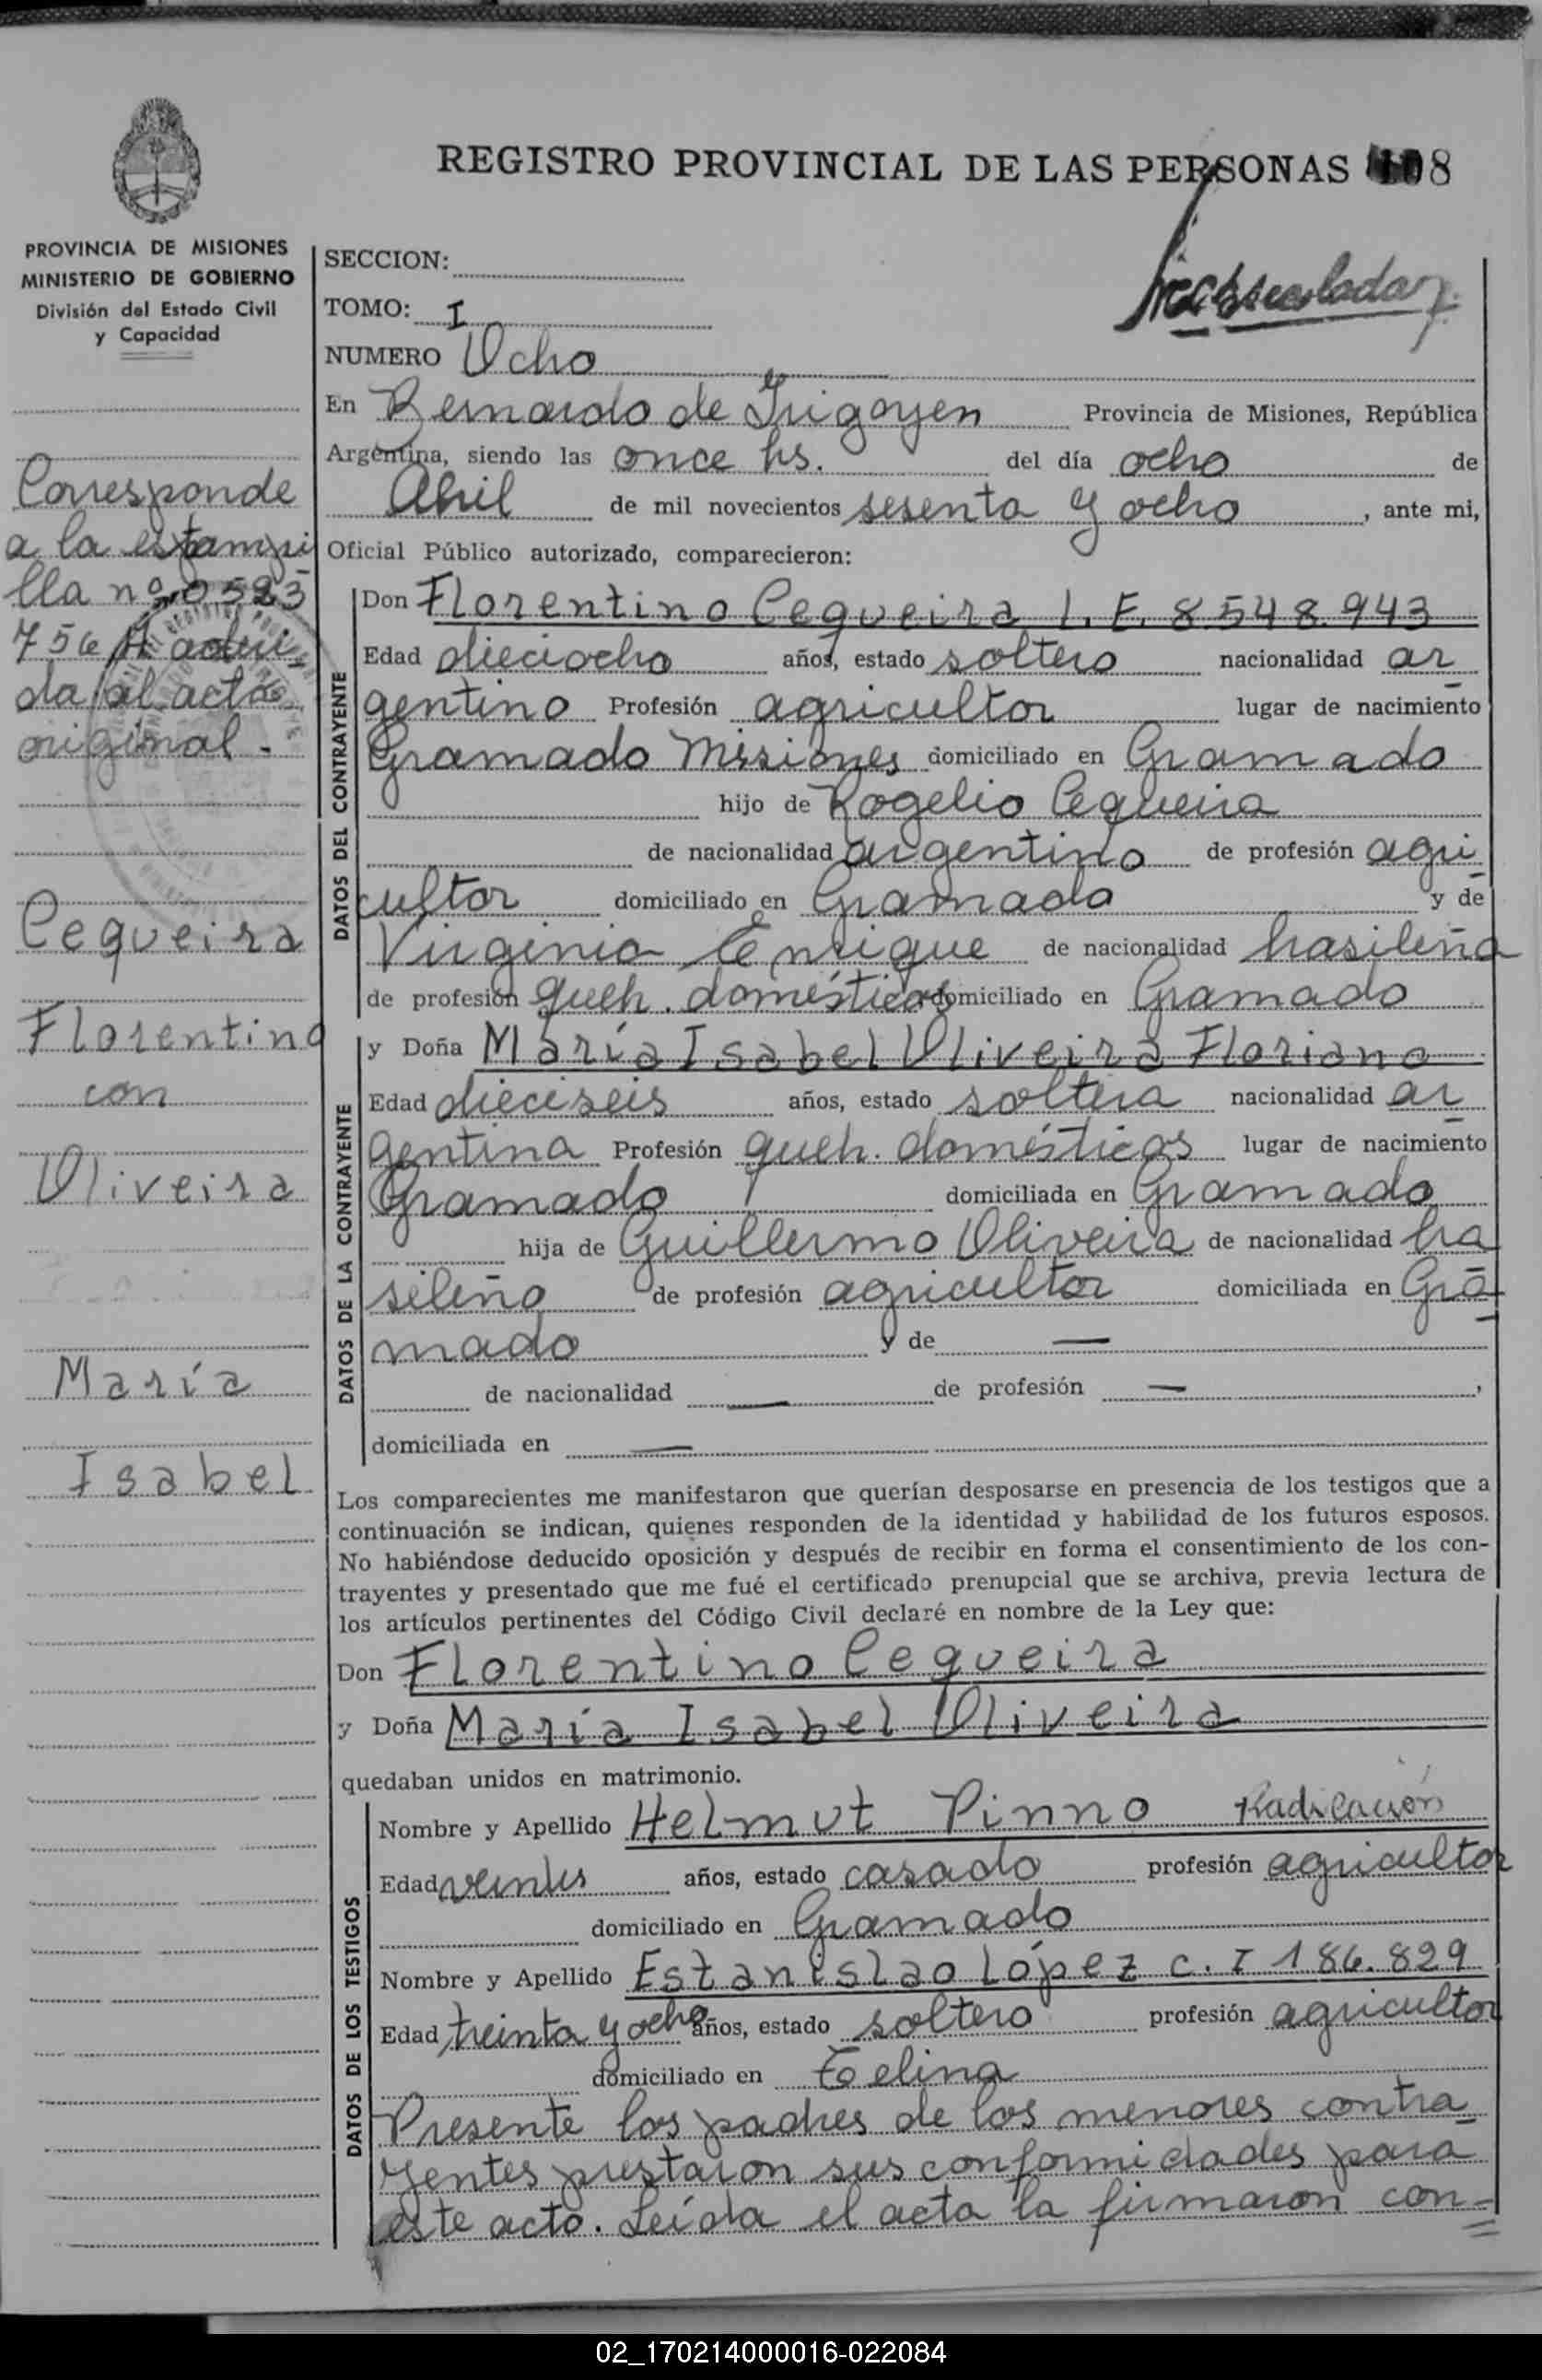 REGISTRO PROVINCIAL DE LAS PERSONAS 108
PROVINCIA DE MISIONES
MINISTERIO DE GOBIERNO
División del Estado Civil
y Capacidad
Corresponde
a la estampi
lla nº 0523
756 A adhi-
da al acta
original.-
Cequeira
Florentino
con
Oliveira
María
Isabel
SECCION:
TOMO: I
NUMERO Ocho
En Bernardo de Irigoyen Provincia de Misiones, República
Argentina, siendo las once hs. del día ocho de
Abril de mil novecientos sesenta y ocho, ante mi,
Oficial Público autorizado, comparecieron:
DATOS DEL CONTRAYENTE
Don Florentino Cequeira L. E. 8548.943
Edad dieciocho años, estado soltero nacionalidad ar
gentino Profesión agricultor lugar de nacimiento
Gramado Misiones domiciliado en Gramado
hijo de Rogelio Cequeira
de nacionalidad argentino de profesión agri
cultor domiciliado en Gramado y de
Virginia Enrique de nacionalidad brasileña
de profesión queh. domésticos domiciliado en Gramado
DATOS DE LA CONTRAYENTE
y Doña María Isabel Oliveira Floriano
Edad dieciseis años, estado soltera nacionalidad ar
gentina Profesión queh. domésticos lugar de nacimiento
Gramado domiciliada en Gramado
hija de Guillermo Oliveira de nacionalidad bra
sileña de profesión agricultor domiciliada en Gra
mado y de —
de nacionalidad — de profesión —,
domiciliada en —
Los comparecientes me manifestaron que querían desposarse en presencia de los testigos que a
continuación se indican, quienes responden de la identidad y habilidad de los futuros esposos.
No habiéndose deducido oposición y después de recibir en forma el consentimiento de los con-
trayentes y presentado que me fué el certificado prenupcial que se archiva, previa lectura de
los artículos pertinentes del Código Civil declaré en nombre de la Ley que:
Don Florentino Cequeira
y Doña María Isabel Oliveira
quedaban unidos en matrimonio.
DATOS DE LOS TESTIGOS
Nombre y Apellido Helmut Pinno Radicación
Edad años, estado casado profesión agricultor
domiciliado en Gramado
Nombre y Apellido Estanislao López C. I 186.829
Edad treinta y ocho años, estado soltero profesión agricultor
domiciliado en
Presente los padres de los menores contra
yentes prestaron sus conformidades para
este acto. Leída el acta la firmaron con=
02_170214000016-022084